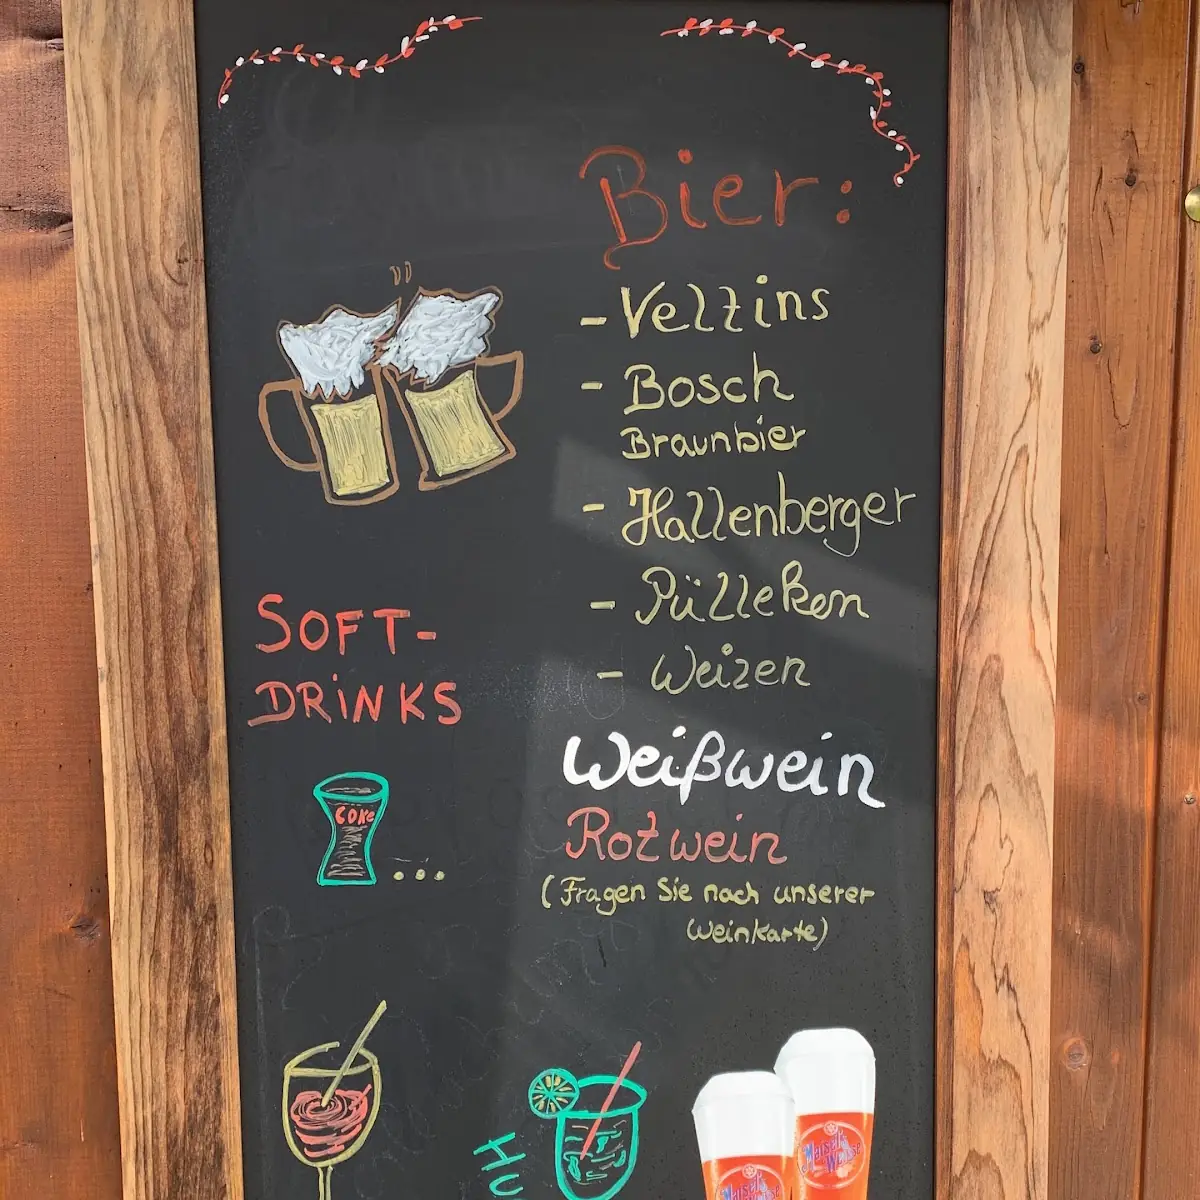 Bier:
- Veltins
- Bosch
Braunbier
- Hallenberger
- Pülleken
- Weizen
SOFT-
DRiNKS
COKE
...
Weißwein
Rotwein
(Fragen Sie nach unserer
Weinkarte)
HU
Maisel's
Weisse
Maisel's